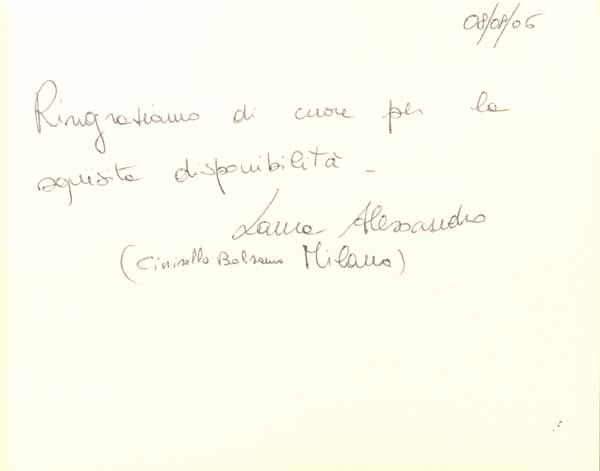 08/08/06
Ringraziamo di cuore per la
squisita disponibilità -
Laura Alessandro
(Cinisello Balsamo Milano)